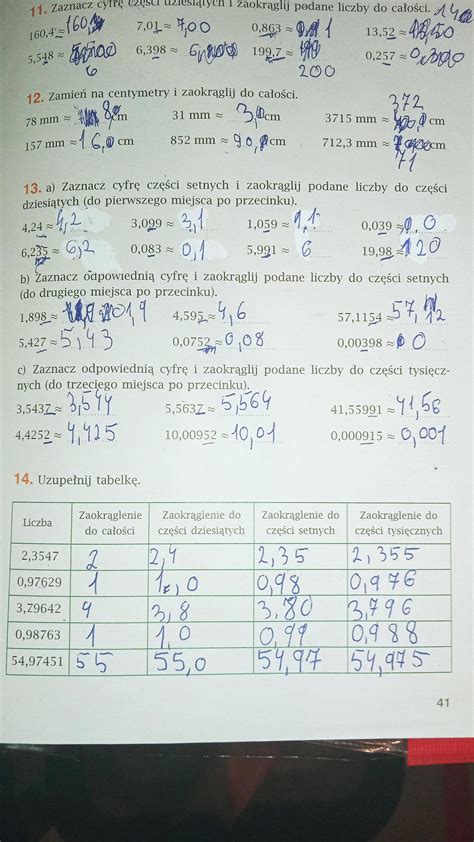 11. Zaznacz cyfrę części dziesiątych i zaokrąglij podane liczby do całości. 14
160,4 ≈ 160 7,01 ≈ 7,00 0,863 ≈ 1 13,52 ≈
5,548 ≈ 6 6,398 ≈ 199,7 ≈ 200 0,257 ≈
12. Zamień na centymetry i zaokrąglij do całości.
78 mm ≈ 8 cm 31 mm ≈ 3,0 cm 3715 mm ≈ 372 cm
157 mm ≈ 16,0 cm 852 mm ≈ 90,0 cm 712,3 mm ≈ 71 cm
13. a) Zaznacz cyfrę części setnych i zaokrąglij podane liczby do części
dziesiątych (do pierwszego miejsca po przecinku).
4,24 ≈ 4,2 3,099 ≈ 3,1 1,059 ≈ 1,1 0,039 ≈ 0,0
6,235 ≈ 6,2 0,083 ≈ 0,1 5,991 ≈ 6 19,98 ≈ 20
b) Zaznacz odpowiednią cyfrę i zaokrąglij podane liczby do części setnych
(do drugiego miejsca po przecinku).
1,898 ≈ 4,595 ≈ 4,6 57,1154 ≈ 57,12
5,427 ≈ 5,43 0,0752 ≈ 0,08 0,00398 ≈ 0
c) Zaznacz odpowiednią cyfrę i zaokrąglij podane liczby do części tysięcz-
nych (do trzeciego miejsca po przecinku).
3,5437 ≈ 3,544 5,5637 ≈ 5,564 41,55991 ≈ 41,56
4,4252 ≈ 4,425 10,00952 ≈ 10,01 0,000915 ≈ 0,001
14. Uzupełnij tabelkę.
Liczba Zaokrąglenie do całości Zaokrąglenie do części dziesiątych Zaokrąglenie do części setnych Zaokrąglenie do części tysięcznych
2,3547 2 2,4 2,35 2,355
0,97629 1 1,0 0,98 0,976
3,79642 4 3,8 3,80 3,796
0,98763 1 1,0 0,99 0,988
54,97451 55 55,0 54,97 54,975
41